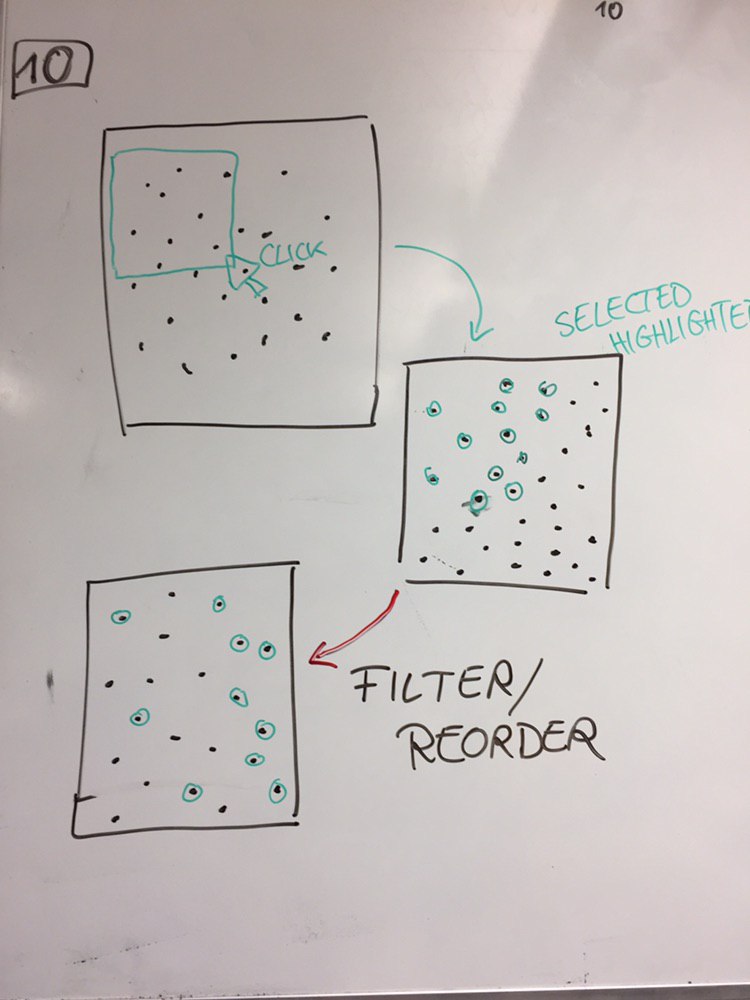 10
10
CLICK
SELECTED
HIGHLIGHTE
FILTER/
REORDER